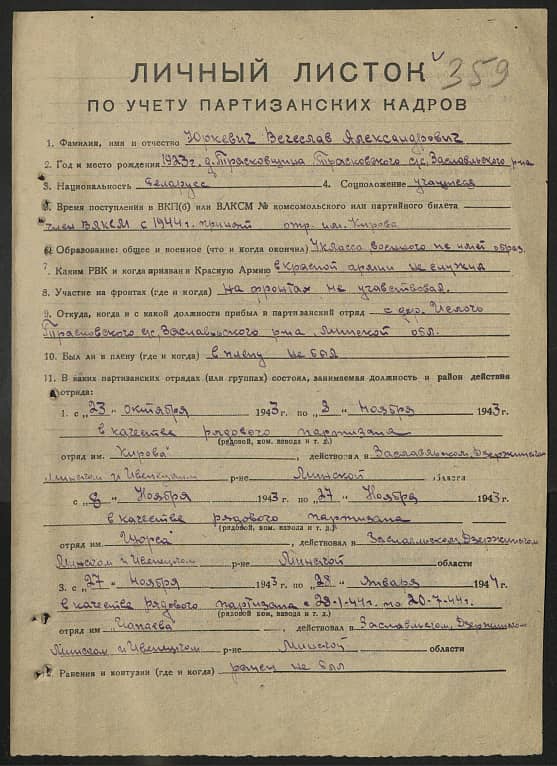 359
ЛИЧНЫЙ ЛИСТОК
ПО УЧЕТУ ПАРТИЗАНСКИХ КАДРОВ
1. Фамилия, имя и отчество Юркевич Вечеслав Александрович
2. Год и место рождения 1923 г. д. Трасковщина Трасковского с/с, Заславльского р-на
3. Национальность беларусс 4. Соцположение учащийся
5. Время поступления в ВКП(б) или ВЛКСМ № комсомольского или партийного билета
член ВЛКСМ с 1944 г. принят отр. им. Кирова
6. Образование: общее и военное (что и когда окончил) 7 классов военного не имел образ.
7. Каким РВК и когда призван в Красную Армию в красной армии не служил
8. Участие на фронтах (где и когда) на фронтах не учавствовал.
9. Откуда, когда и с какой должности прибыл в партизанский отряд с дер.
Трасковского с/с, Заславльского р-на Минской обл.
10. Был ли в плену (где и когда) в плену не был
11. В каких партизанских отрядах (или группах) состоял, занимаемая должность и район действия
отряда:
1. с „23“ октября 1943 г. по „3“ Ноября 1943 г.
в качестве рядового партизана
(рядовой, ком. взвода и т. д.)
отряд им. "Кирова" , действовал в Заславльском, Дзержинском
Минском и Ивенецком р-не Минской области
с „8“ Ноября 1943 г. по „27“ Ноября 1943 г.
в качестве рядового партизана
(рядовой, ком. взвода и т. д.)
отряд им. "Щорса" , действовал в Заславльском, Дзержинском
Минском и Ивенецком р-не Минской области
3. с „27“ Ноября 1943 г. по „28“ Января 1944 г.
в качестве рядового партизана с 29-1-44 г. по 20-7-44 г.
(рядовой, ком. взвода и т. д.)
отряд им. "Чапаева" , действовал в Заславльском, Дзержинско-
Минском и Ивенецком р-не Минской области
12. Ранения и контузии (где и когда) ранен не был